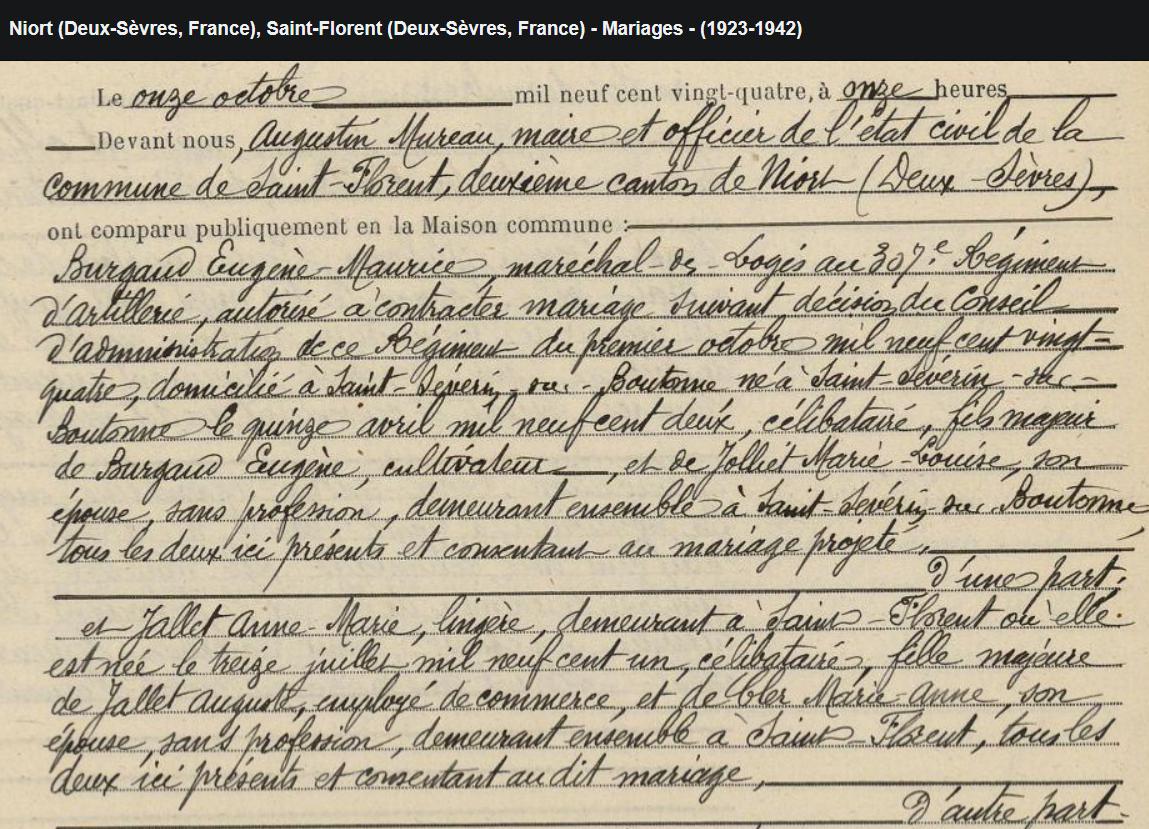 Niort (Deux-Sèvres, France), Saint-Florent (Deux-Sèvres, France) - Mariages - (1923-1942)
Le onze octobre mil neuf cent vingt-quatre, à onze heures
Devant nous, Augustin Mureau, maire et officier de l'état civil de la
commune de Saint-Florent, deuxième canton de Niort (Deux-Sèvres),
ont comparu publiquement en la Maison commune :
Burgaud Eugène-Maurice, maréchal-des-Logis au 307e Régiment
d'artillerie, autorisé à contracter mariage suivant décision du Conseil
d'administration de ce Régiment du premier octobre mil neuf cent vingt-
quatre, domicilié à Saint-Séverin-sur-Boutonne né à Saint-Séverin-sur-
Boutonne le quinze avril mil neuf cent deux, célibataire, fils majeur
de Burgaud Eugène, cultivateur, et de Jolliet Marie-Louise, son
épouse, sans profession, demeurant ensemble à Saint-Sevérin-sur-Boutonne,
tous les deux ici présents et consentant au mariage projeté,
D'une part.
et Jallet Anne-Marie, lingère, demeurant à Saint-Florent où elle
est née le treize juillet mil neuf cent un, célibataire, fille majeure
de Jallet Auguste, employé de commerce, et de Marie-Anne, son
épouse, sans profession, demeurant ensemble à Saint-Florent, tous les
deux ici présents et consentant au dit mariage,
D'autre part.